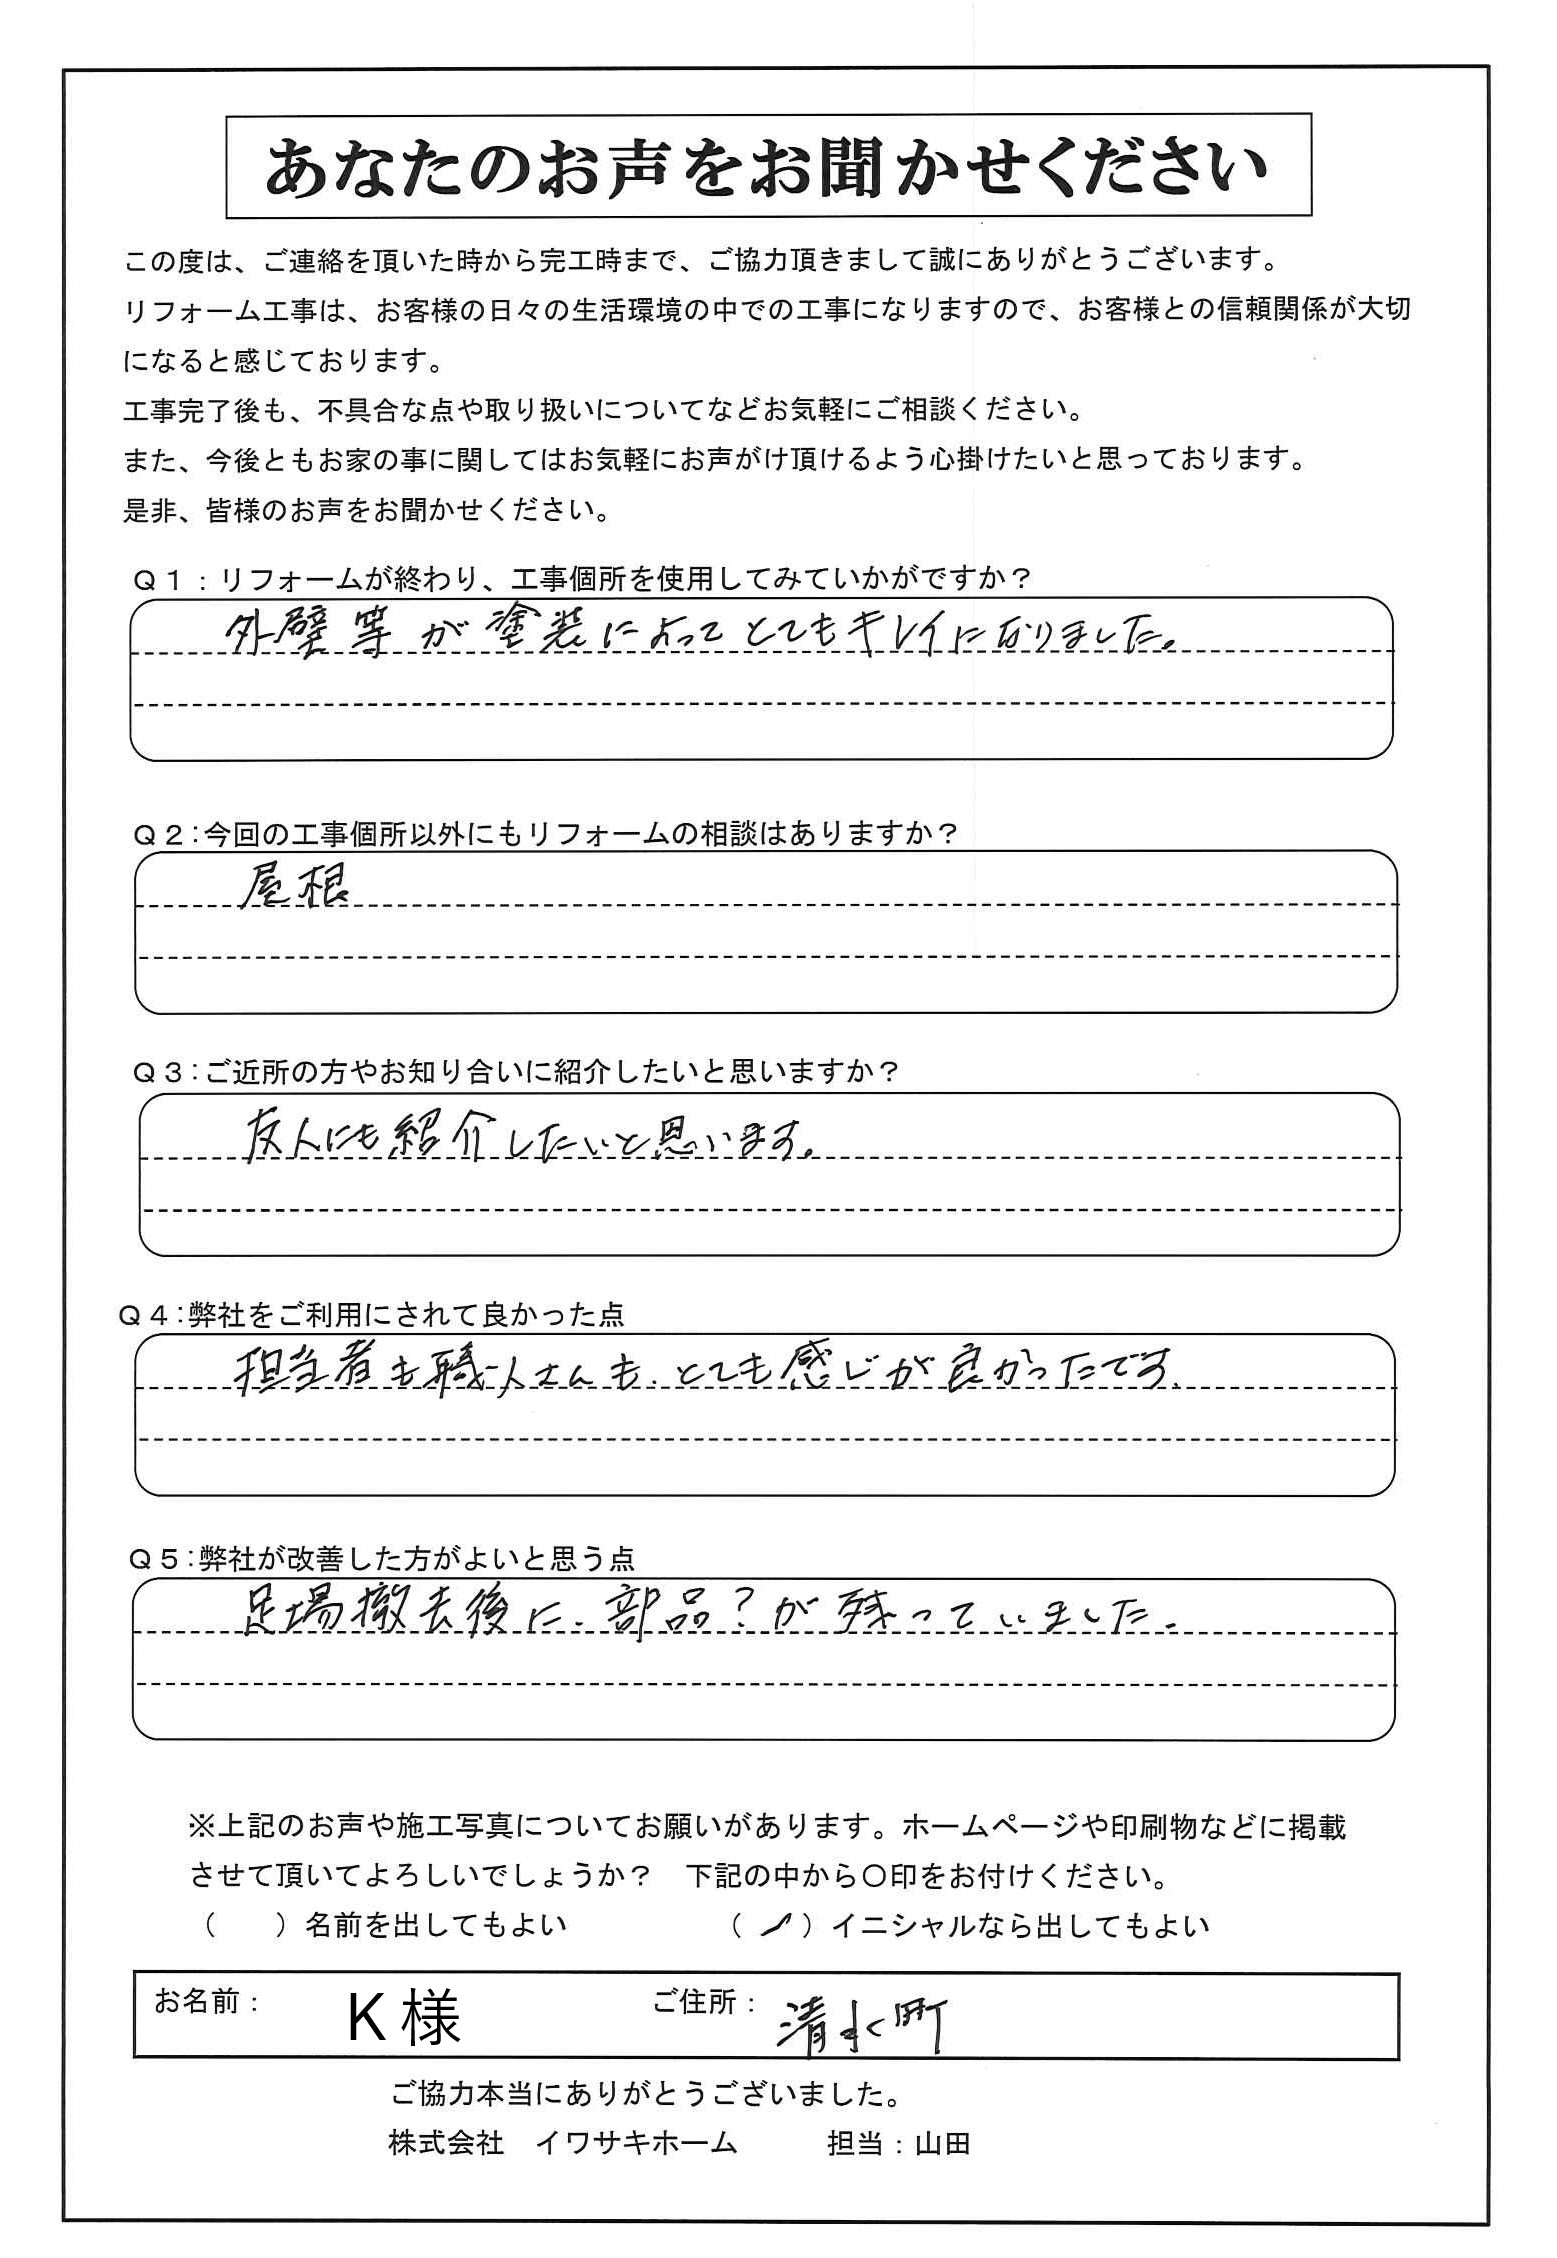 あなたのお声をお聞かせください
この度は、ご連絡を頂いた時から完工時まで、ご協力頂きまして誠にありがとうございます。
リフォーム工事は、お客様の日々の生活環境の中での工事になりますので、お客様との信頼関係が大切
になると感じております。
工事完了後も、不具合な点や取り扱いについてなどお気軽にご相談ください。
また、今後ともお家の事に関してはお気軽にお声がけ頂けるよう心掛けたいと思っております。
是非、皆様のお声をお聞かせください。
Q1:リフォームが終わり、工事個所を使用してみていかがですか?
外壁等が塗装によってとてもキレイになりました。
Q2:今回の工事個所以外にもリフォームの相談はありますか?
屋根
Q3:ご近所の方やお知り合いに紹介したいと思いますか?
友人にも紹介したいと思います。
Q4:弊社をご利用にされて良かった点
担当者も職人さんも、とても感じが良かったです。
Q5:弊社が改善した方がよいと思う点
足場撤去後に、部品?が残っていました。
※上記のお声や施工写真についてお願いがあります。ホームページや印刷物などに掲載
させて頂いてよろしいでしょうか?　下記の中から〇印をお付けください。
(　　)名前を出してもよい　　　　　(✓)イニシャルなら出してもよい
お名前:　K様　　ご住所:　清水町
ご協力本当にありがとうございました。
株式会社　イワサキホーム　　　担当:山田